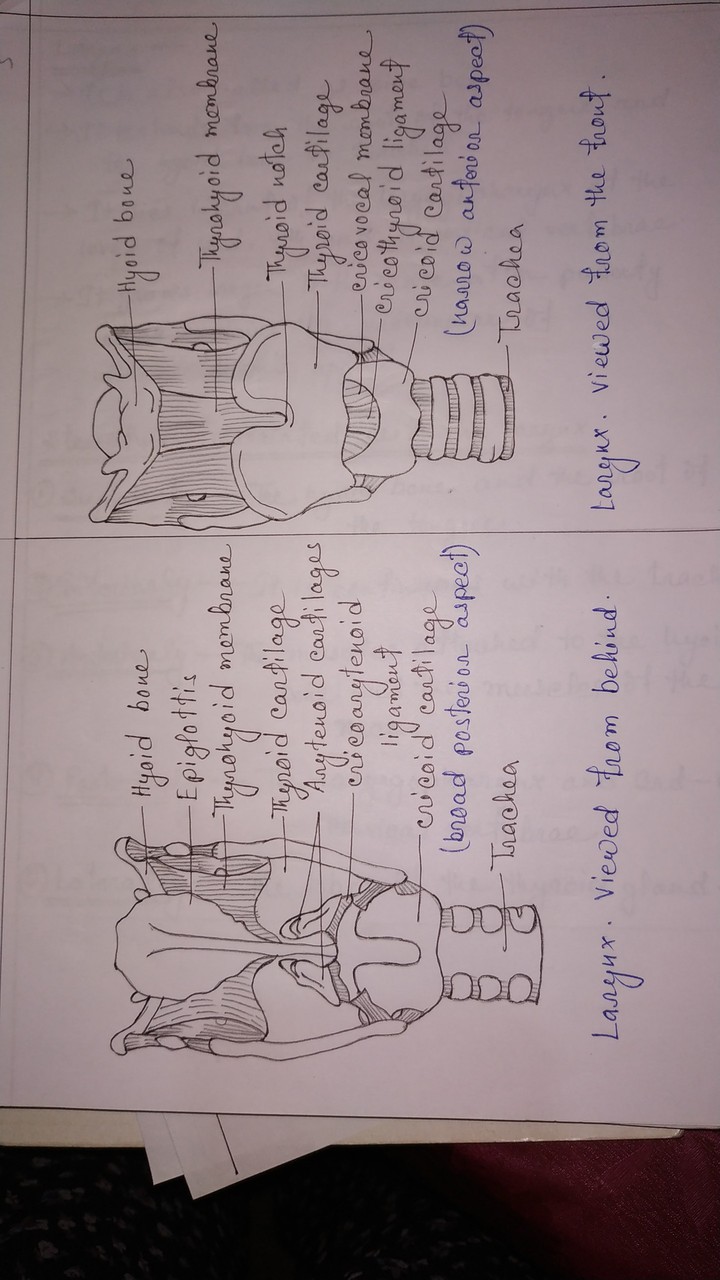 Hyoid bone
Epiglottis
Thyrohyoid membrane
Thyroid cartilage
Arytenoid cartilages
cricoarytenoid
ligament
cricoid cartilage
(broad posterior aspect)
Trachea
Larynx. Viewed from behind.
Hyoid bone
Thyrohyoid membrane
Thyroid notch
Thyroid cartilage
cricovocal membrane
cricothyroid ligament
cricoid cartilage
(narrow anterior aspect)
Trachea
Larynx. Viewed from the front.